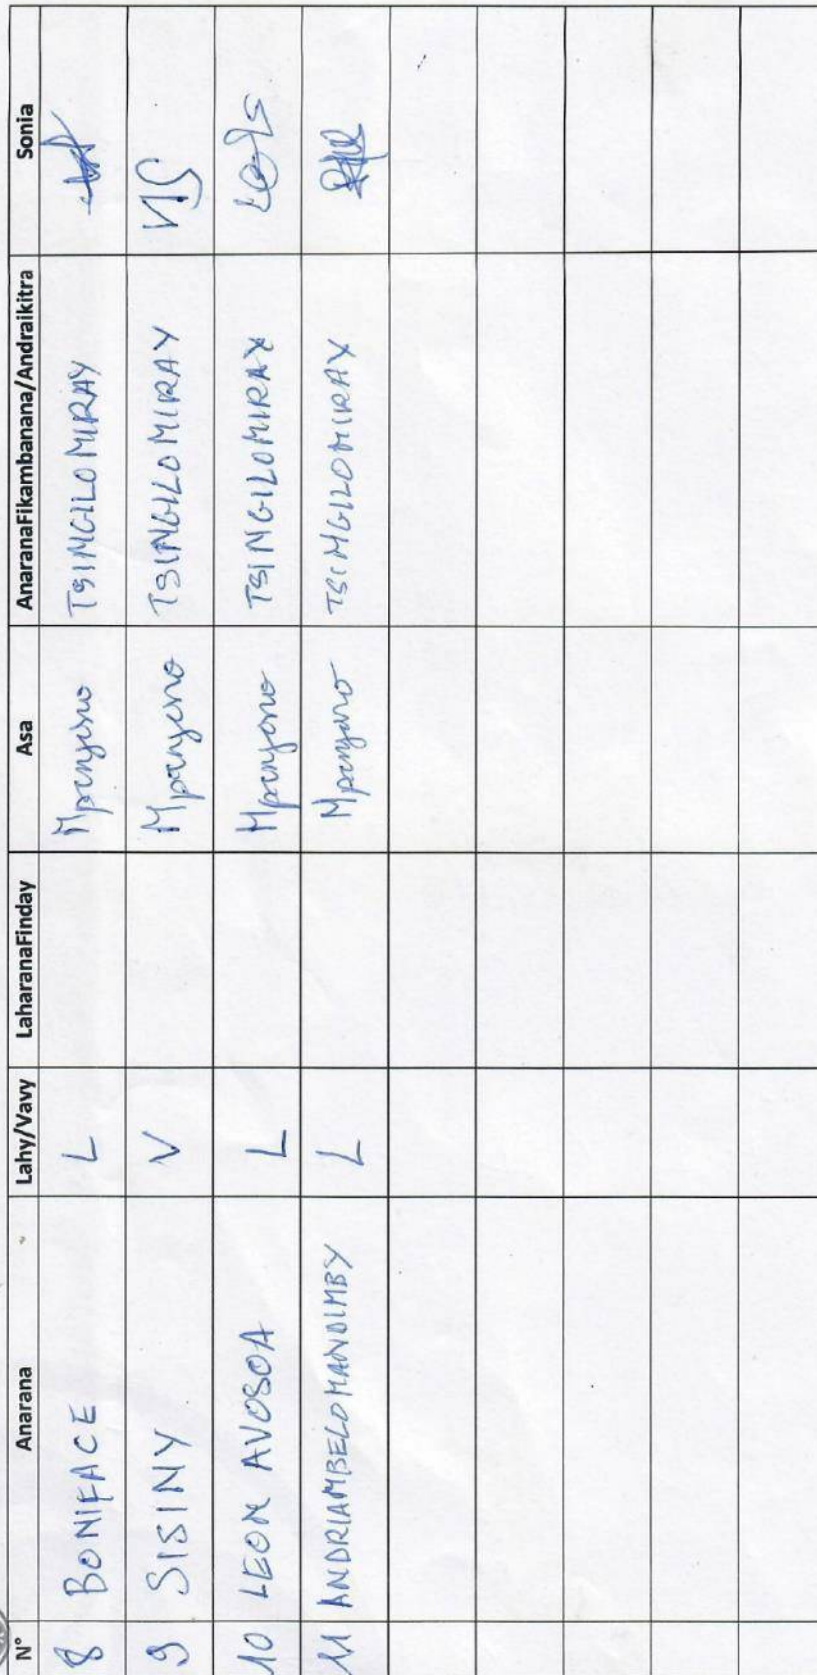 N° Anarana Lahy/Vavy LaharanaFinday Asa AnaranaFikambanana/Andraikitra Sonia
8 BONIFACE L Mpanjono TSIMGILOMIRAY
9 SISINY V Mpanjono TSIMGILOMIRAY
10 LEON AVOSOA L Mpanjono TSIMGILOMIRAY
11 ANDRIAMBELOMANDIMBY L Mpanjono TSIMGILOMIRAY